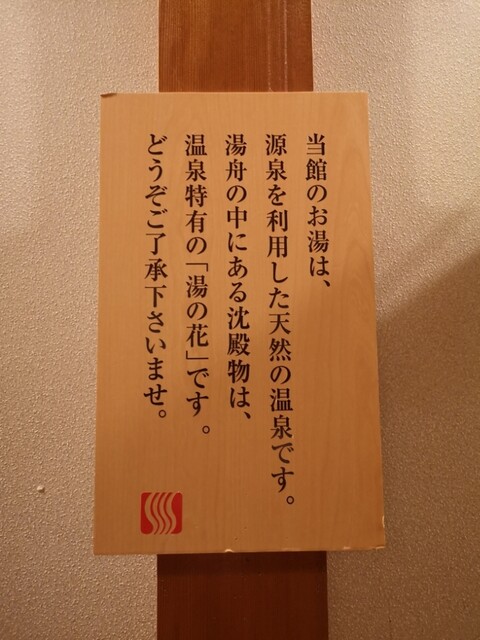 当館のお湯は、
源泉を利用した天然の温泉です。
湯舟の中にある沈殿物は、
温泉特有の「湯の花」です。
どうぞご了承下さいませ。